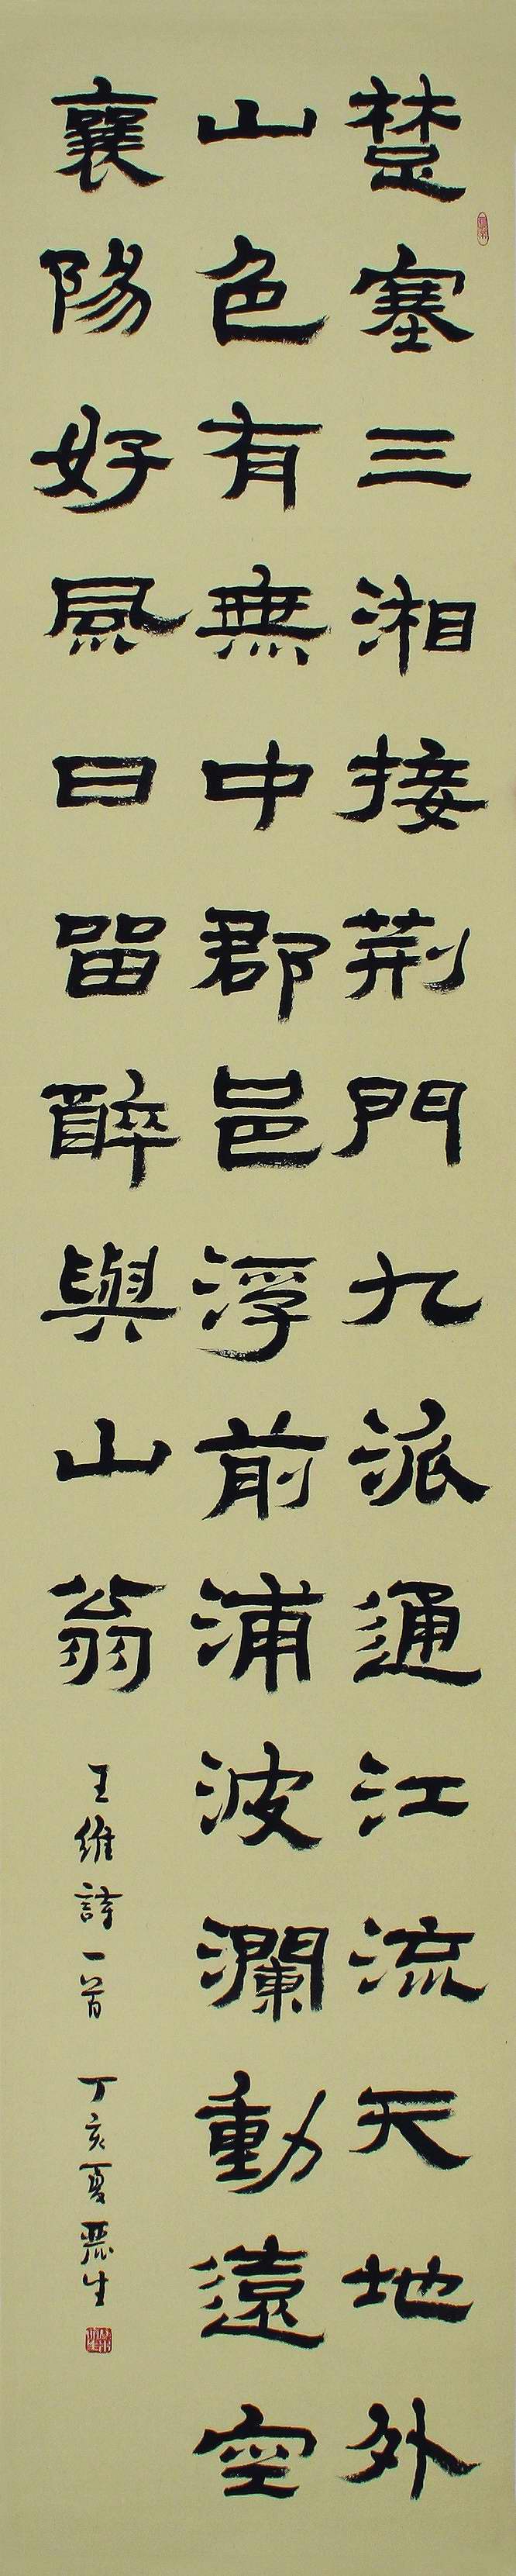 楚塞三湘接荆門九派通江流天地外
山色有無中郡邑浮前浦波瀾動遠空
襄陽好風日留醉與山翁
王維詩一首 丁亥夏 生